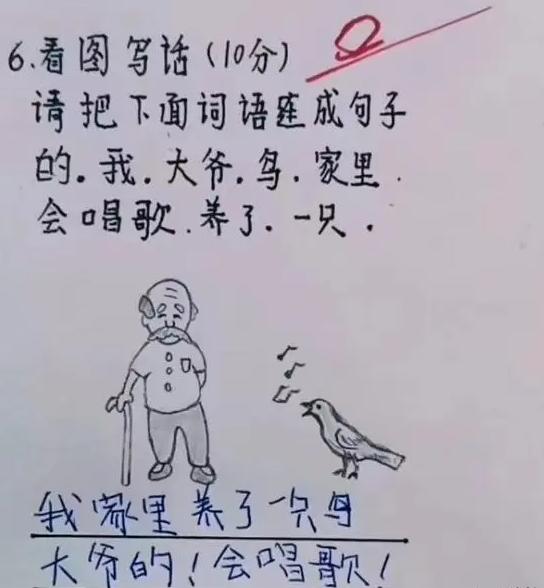 6.看图写话(10分)
请把下面词语连成句子
的.我.大爷.鸟.家里.
会唱歌.养了.一只.
0
我家里养了一只鸟
大爷的!会唱歌!